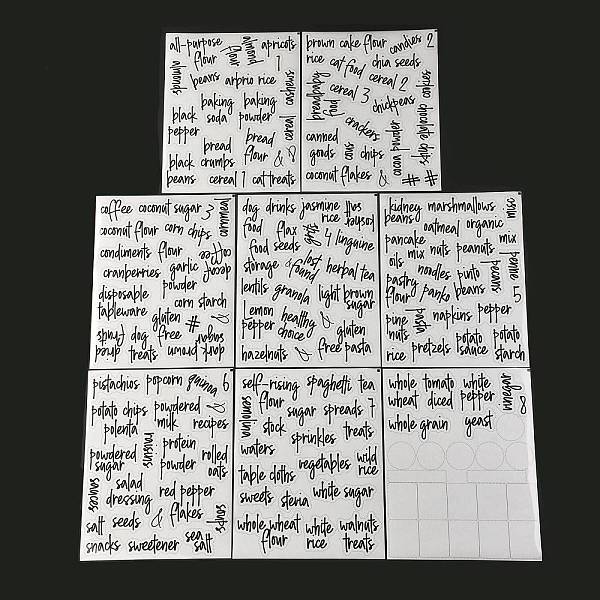 all-purpose flour
almond flour
apricots
1
almonds
beans
arbrio rice
cashews
baking soda
baking powder
black pepper
bread flour
cereal
bread crumbs
& 
black beans
cereal 1
cat treats
brown rice
cake flour
candies
2
cat food
chia seeds
cereal 2
cookies
bread
baby food
cereal 3
chickpeas
chocolate chips
crackers
cocoa powder
canned goods
cous cous
chips
coconut flakes
&
#
#
coffee
coconut sugar
3
cornmeal
coconut flour
corn chips
condiments
flour
coffee
decaf
cranberries
garlic powder
disposable tableware
corn starch
gluten free
#
&
dried fruit
dog treats
dark brown sugar
dog food
drinks
jasmine rice
kosher salt
flax seeds
food storage
4
linguine
lost & found
herbal tea
lentils
granola
light brown sugar
lemon pepper
healthy choice
&
gluten free
hazelnuts
&
pasta
kidney beans
marshmallows
misc
oatmeal
organic
pancake mix
nuts
peanuts
mix
oils
noodles
pinto beans
pecans
penne
pastry flour
panko
5
pine nuts
pasta
napkins
pepper
rice
pretzels
potato sauce
potato starch
pistachios
popcorn
quinoa
6
potato chips
powdered milk
&
polenta
recipes
raisins
powdered sugar
protein powder
rolled oats
sauces
salad dressing
red pepper flakes
salt
seeds
&
soups
snacks
sweetener
sea salt
self-rising flour
spaghetti
tea
sugar
spreads
7
stock
sprinkles
treats
waters
vegetables
wild rice
table cloths
sweets
stevia
white sugar
whole wheat flour
white rice
walnuts
treats
whole wheat
tomato diced
white pepper
vinegar
8
whole grain
yeast